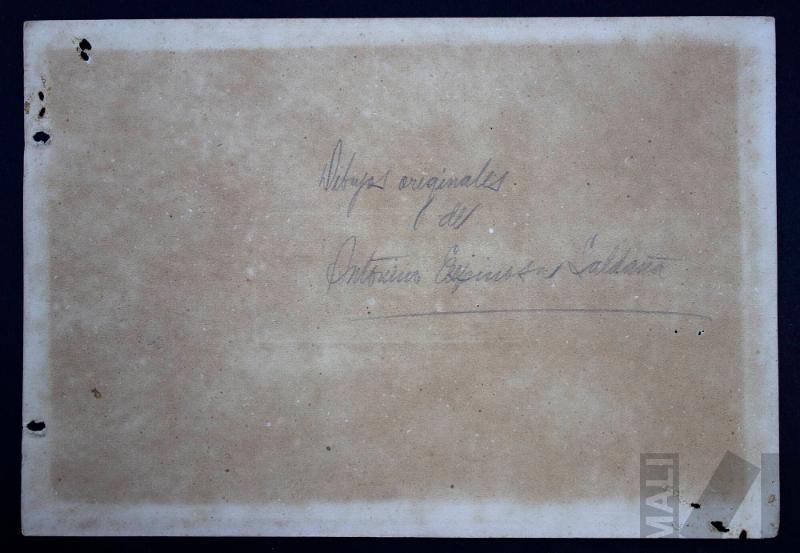 Dibujos originales
de
Antonino Espinosa Saldaña
MALI